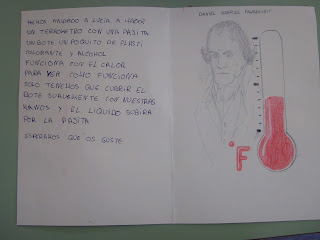 HEMOS MANDADO A LUCÍA A HACER
UN TERMOMETRO CON UNA PAJITA
UN BOTE UN POQUITO DE PLASTI
COLORANTE Y ALCOHOL
FUNCIONA CON EL CALOR
PARA VER COMO FUNCIONA
SOLO TENEMOS QUE CUBRIR EL
BOTE SUAVEMENTE CON NUESTRAS
MANOS Y EL LIQUIDO SUBIRA
POR LA PAJITA
ESPERAMOS QUE OS GUSTE
DANIEL GABRIEL FAHRENHEIT
°F